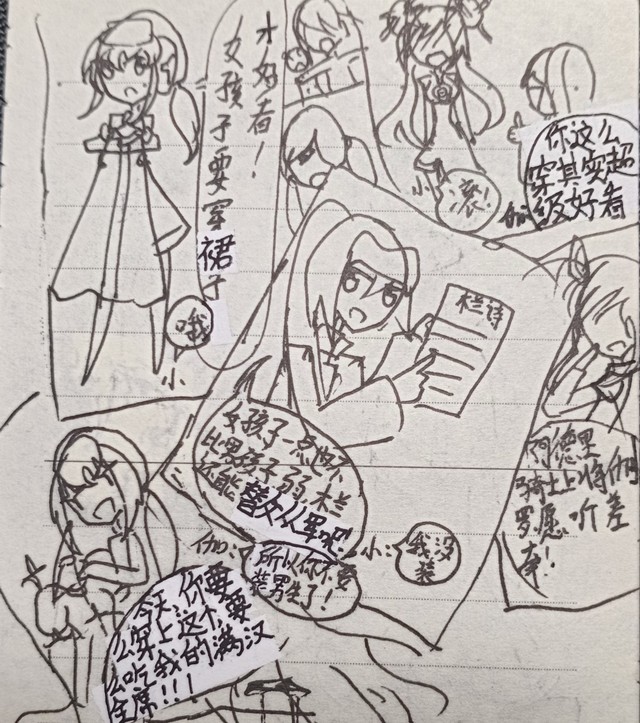 女孩子要穿裙子
才好看！
哦
小
你这么
穿其实超
级好看
伽：
滚！
小：
木兰诗
女孩子一点也不
比男孩子弱，木兰
还能替父从军呢！
伽：
所以你不要
装男生了！
小：
我没
装
阿德里
骑士上将伽
罗，愿听差
奉！
今天，你要
么穿上这个，要
么吃我的满汉
全席！！！